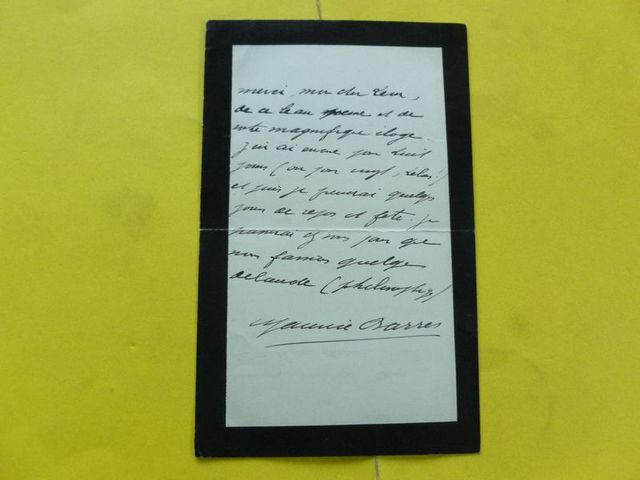 merci, mon cher Leon,
de ce beau poeme et de
votre magnifique eloge.
J'en ai encore pour huit
jours (ou pour vingt, helas!)
et puis je prendrai quelques
jours de repos et fete: je
passerai chez vous pour que
nous fassions quelque
(philosophique)
Maurice Barres